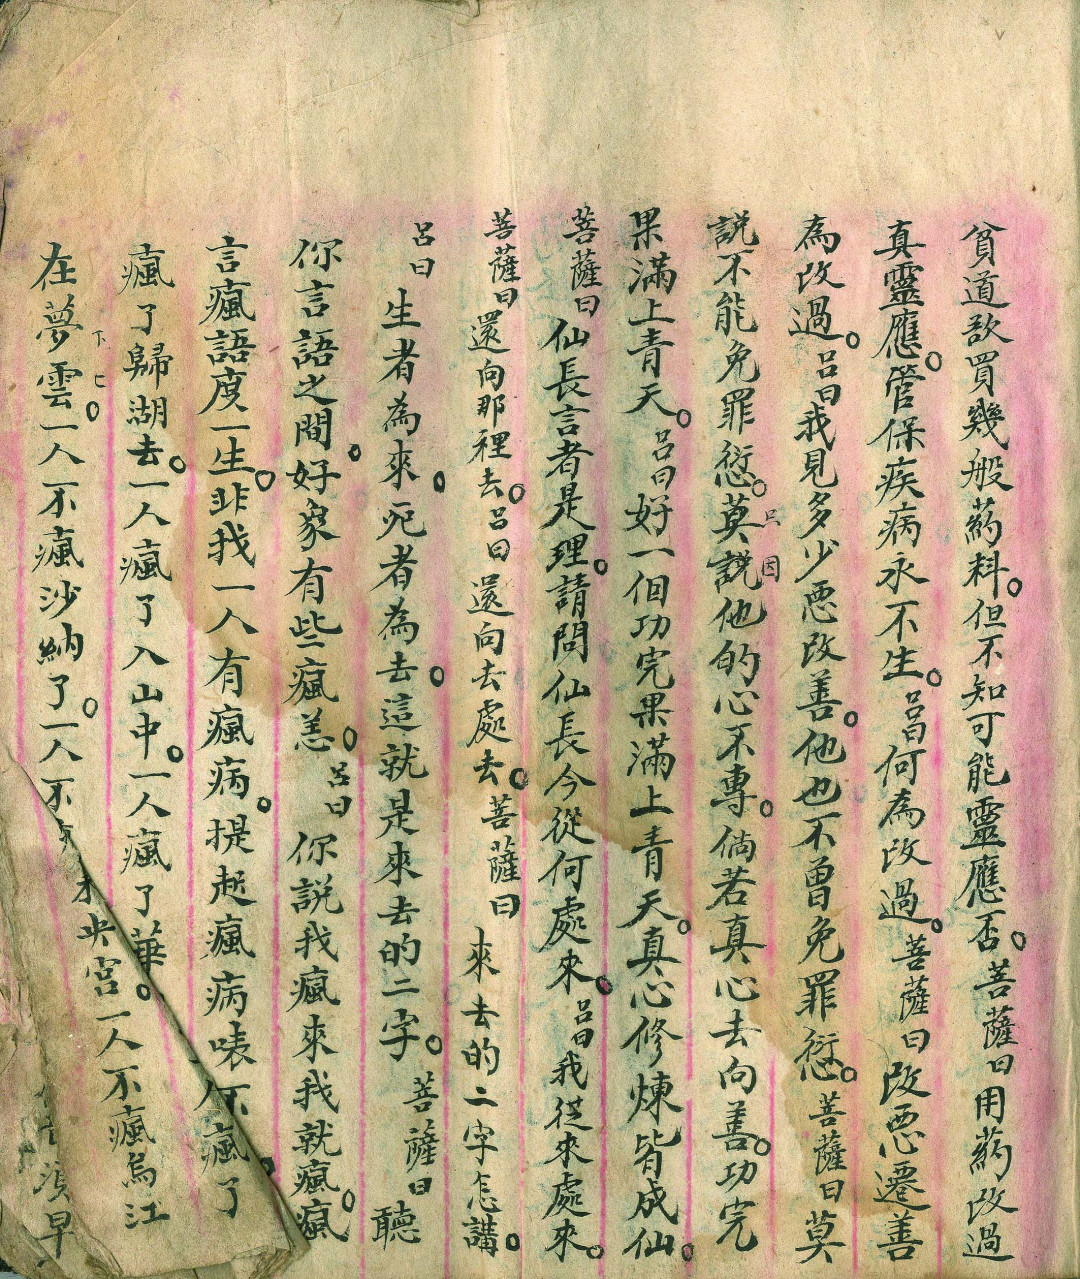 貧道敨買幾般葯料。但不知可能靈應否。菩薩曰用葯改過
真靈應。管保疾病永不生。呂曰何為改過。菩薩曰改悪遷善
為改過。呂曰我見多少悪改善。他也不曾免罪愆。菩薩曰莫
説不能免罪愆。莫説他的心不專。倘若真心去向善。功完
只因
果滿上青天。呂曰好一個功完果滿上青天。真心修煉皆成仙。
菩薩曰仙長言者是理。請問仙長今從何處來。呂曰我從來處來。
菩薩曰還向那裡去。呂曰還向去處去。菩薩曰來去的二字怎講。
呂曰生者為來。死者為去。這就是來去的二字。菩薩曰聽
你言語之間。好象有些瘋恙。呂曰你説我瘋來我就瘋。瘋
言瘋語度一生。非我一人有瘋病。提起瘋病唩不瘋了
瘋了歸湖去。一人瘋了入山中。一人瘋了華。
在夢雲。一人不瘋沙納了。一人不
下
央宮一人不瘋烏江
湏早